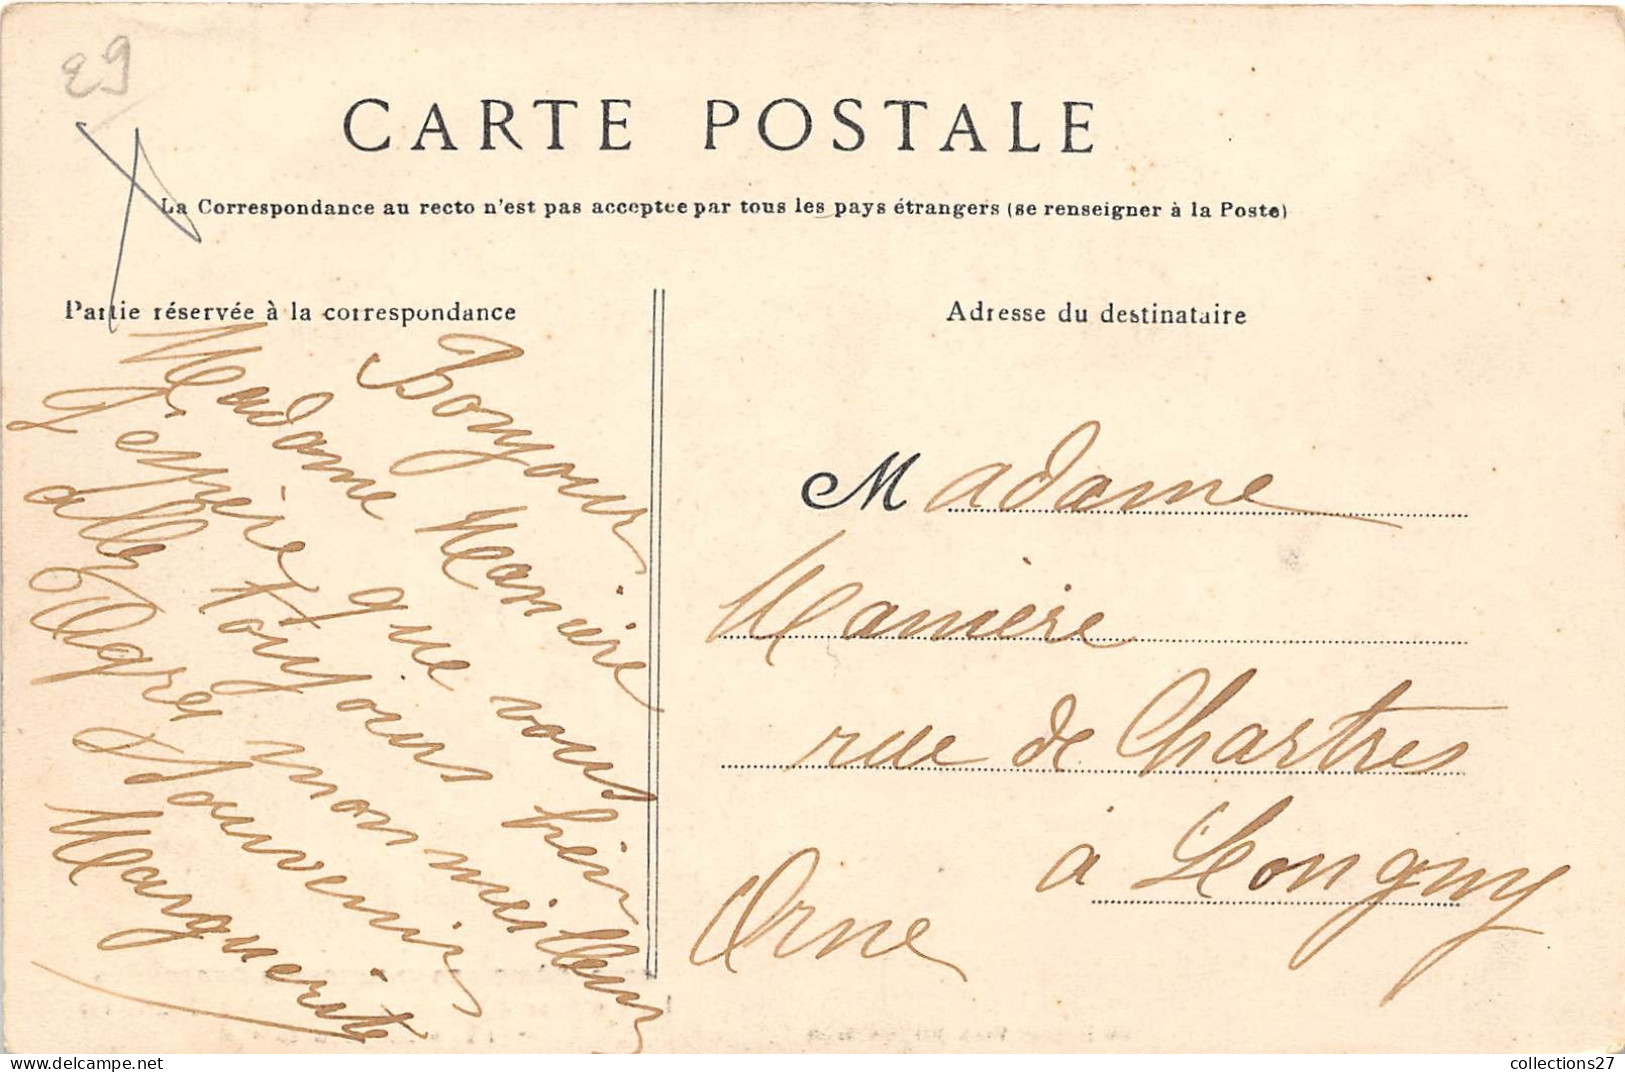 29
CARTE POSTALE
La Correspondance au recto n'est pas acceptée par tous les pays étrangers (se renseigner à la Poste)
Partie réservée à la correspondance
Bonjour
Madame Manière
J'espère que vous
allez toujours bien
Agrée mon meilleur
Souvenir
Marguerite
Adresse du destinataire
Madame
Manière
rue de Chartres
à Longny
Orne
delcampe.net
collections27